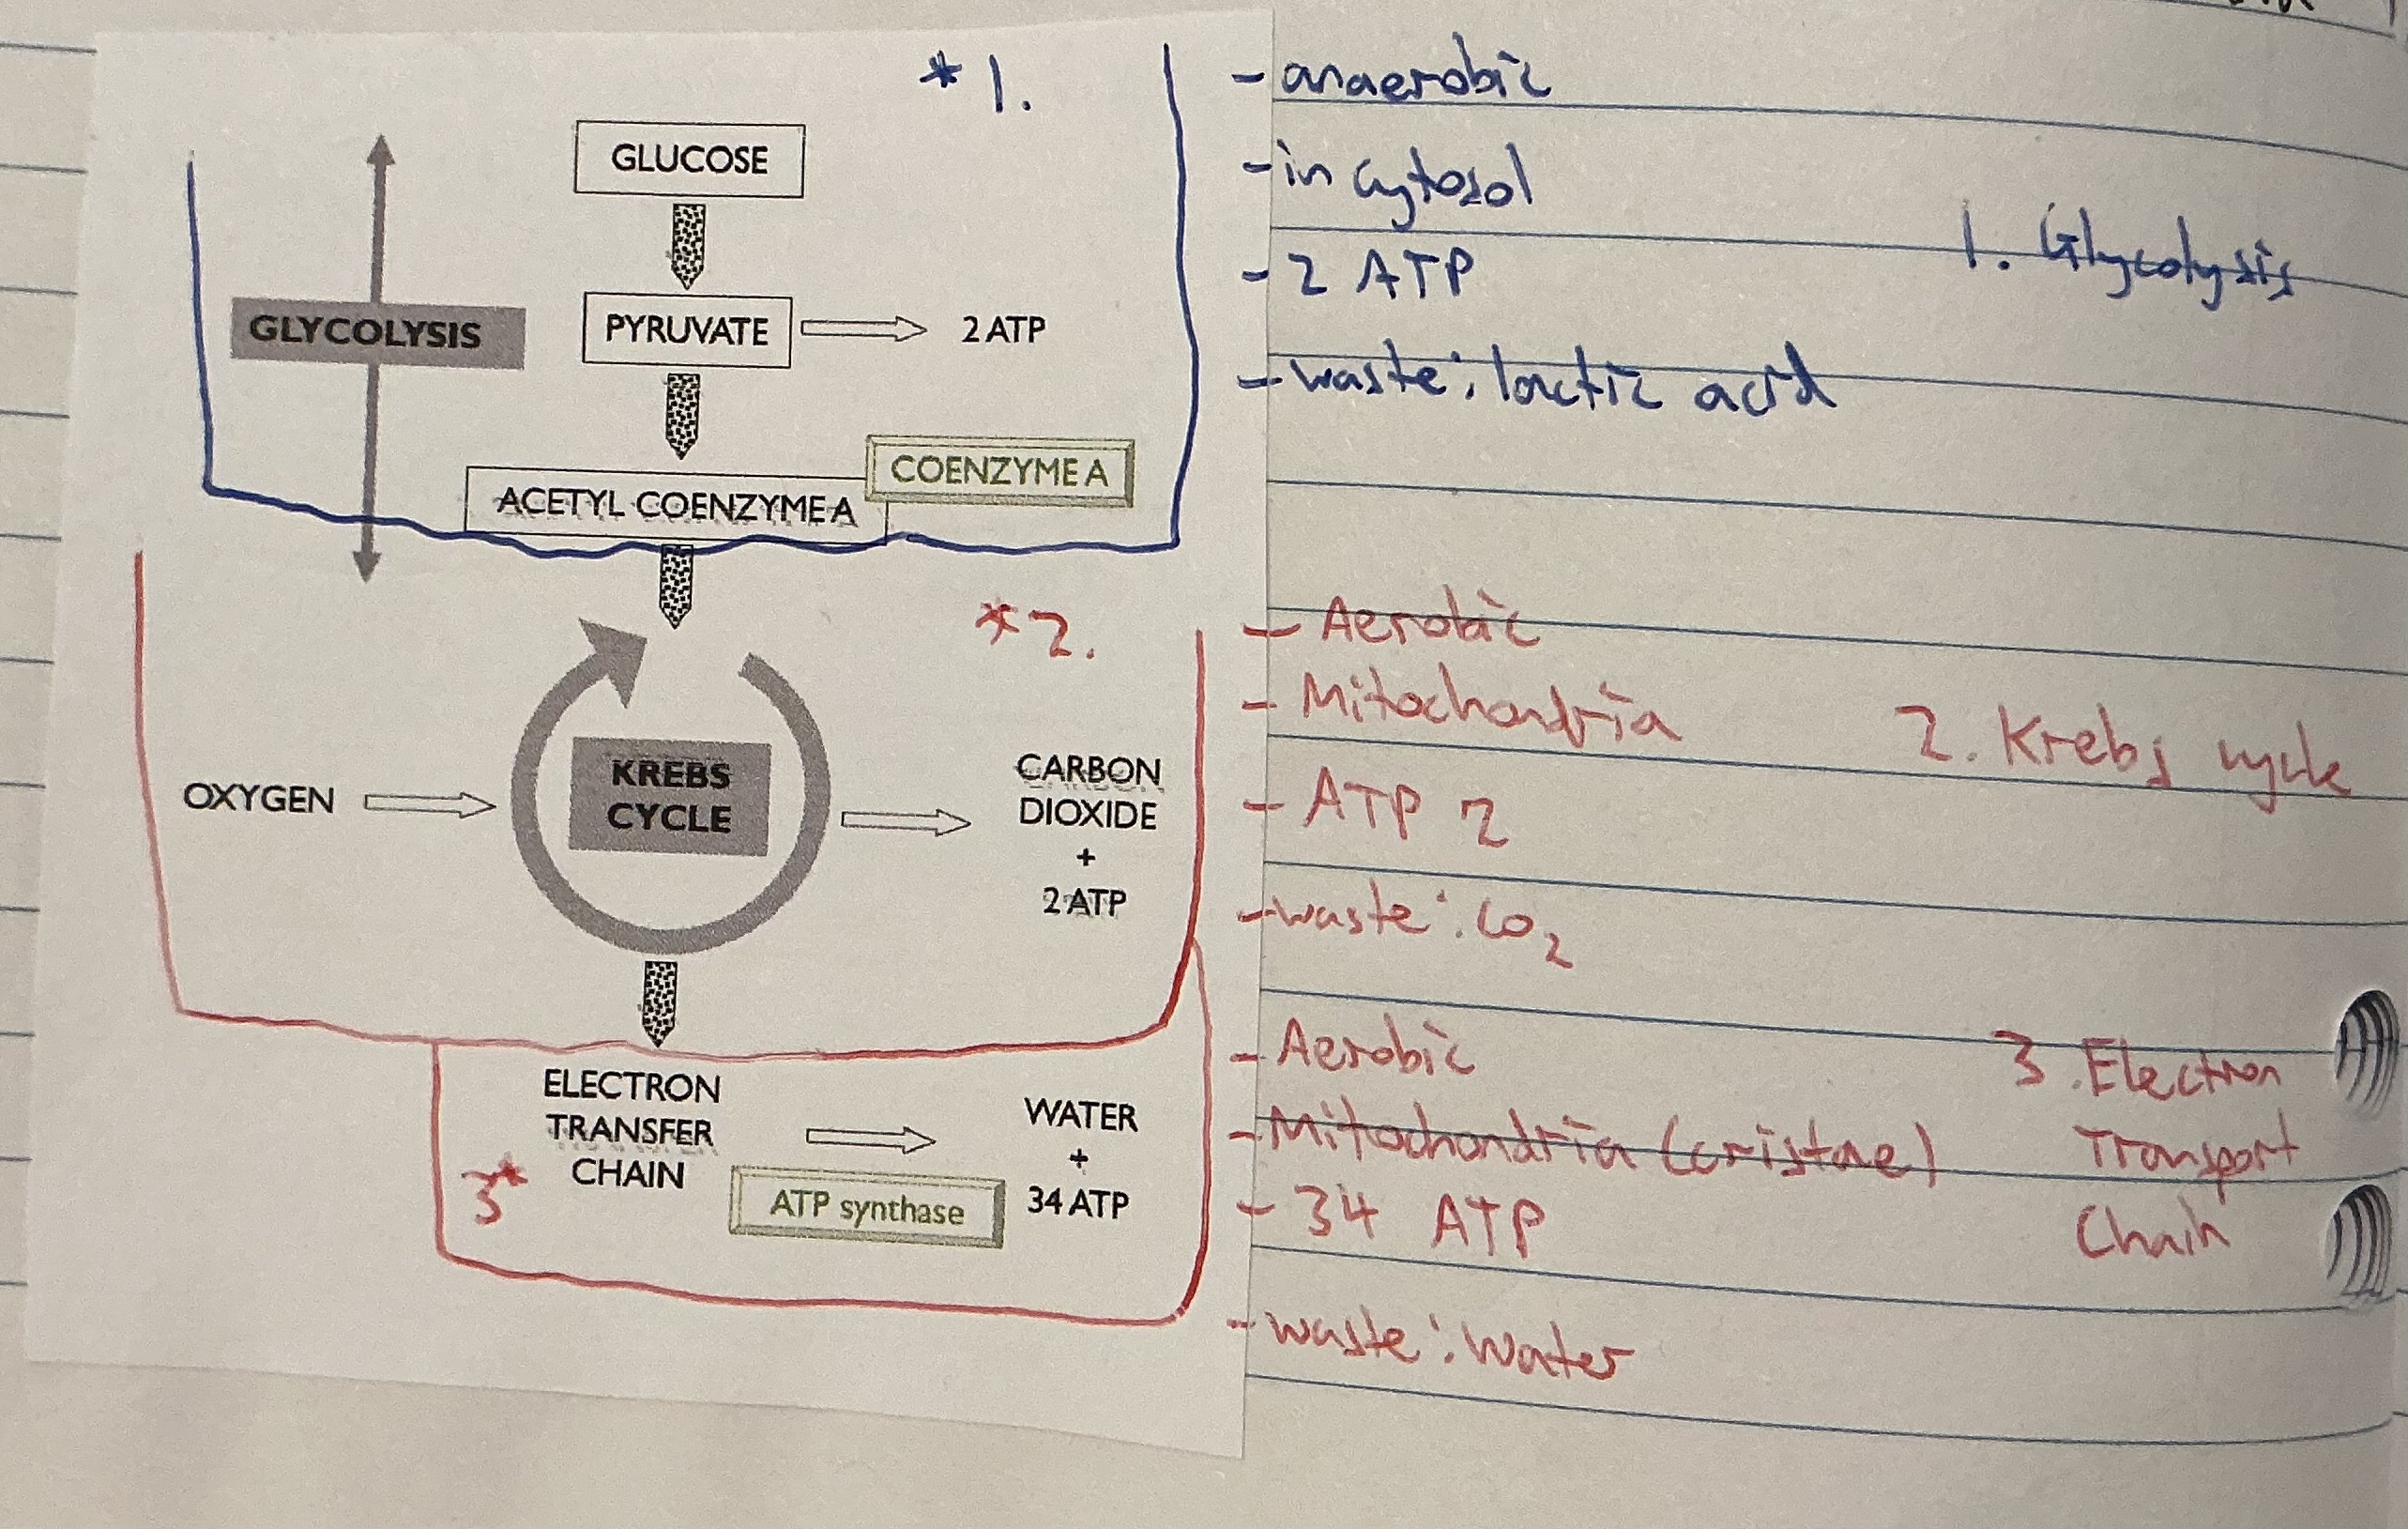 *1.
GLUCOSE
GLYCOLYSIS
PYRUVATE
2 ATP
COENZYME A
ACETYL COENZYME A
- anaerobic
- in cytosol
- 2 ATP
- waste: lactic acid
1. Glycolysis
*2.
OXYGEN
KREBS
CYCLE
CARBON
DIOXIDE
+
2 ATP
- Aerobic
- Mitochondria
- ATP 2
- waste: CO2
2. Krebs cycle
3*
ELECTRON
TRANSFER
CHAIN
ATP synthase
WATER
+
34 ATP
- Aerobic
- Mitochondria (cristae)
- 34 ATP
- waste: water
3. Electron
Transport
Chain